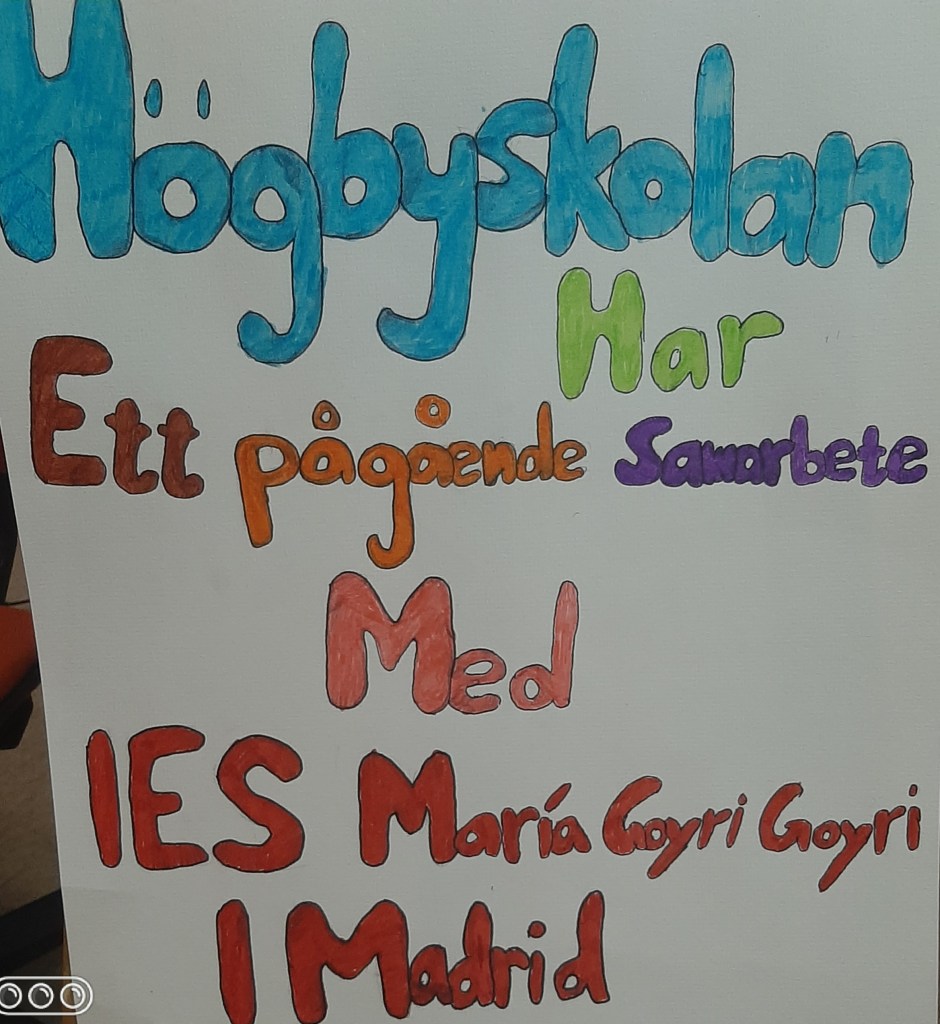 Högbyskolan
Har
Ett pågående Samarbete
Med
IES María Goyri Goyri
I Madrid